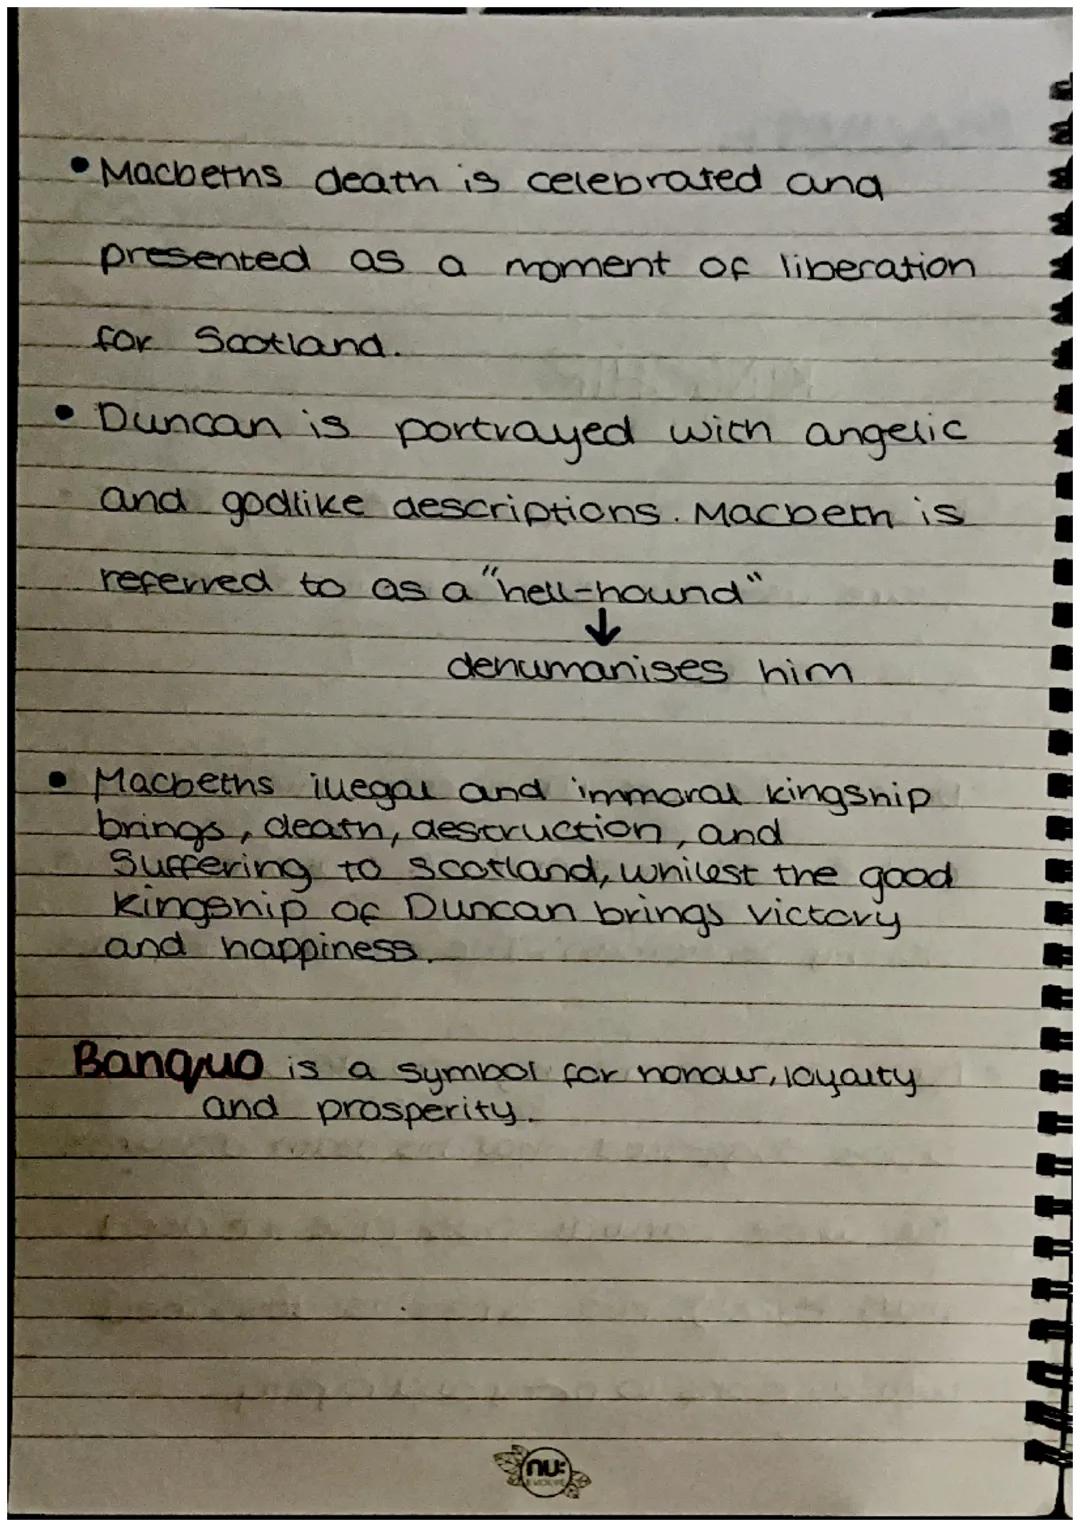 • Macbeths death is celebrated and
presented as a moment of liberation
for Scotland.
• Duncan is portrayed with angelic
and godlike descriptions. Macbeth is
referred to as a "hell-hound"
↓
dehumanises him
• Macbeths illegal and immoral kingship
brings, death, destruction, and
suffering to Scotland, whilest the good
kingship of Duncan brings victory
and happiness.
Banquo is a symbol for honour, loyalty
and prosperity.
nu:
EVOLVE